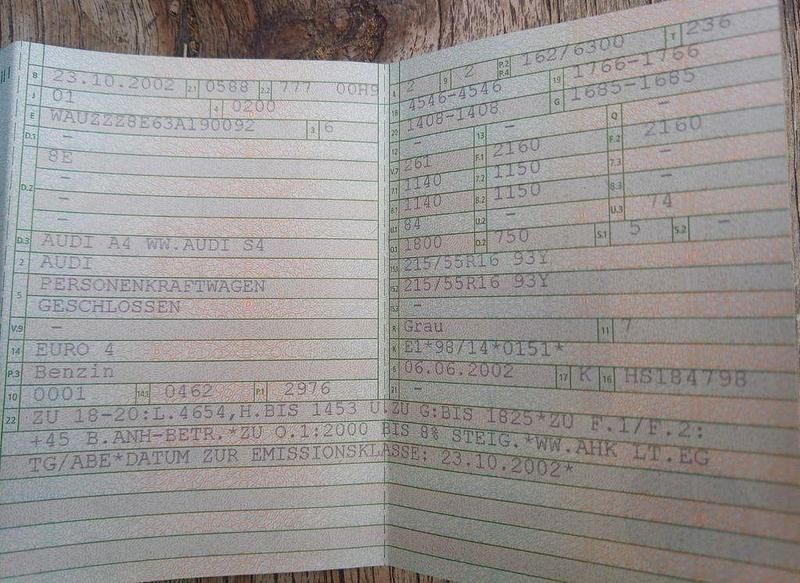 B 23.10.2002 2.1 0588 2.2 777 00H9
J 01 4 0200
E WAUZZZ8E63A190092 3 6
D.1 -
8E
D.2 -
-
-
D.3 AUDI A4 WW.AUDI S4
2 AUDI
5 PERSONENKRAFTWAGEN
GESCHLOSSEN
V.9 -
14 EURO 4
P.3 Benzin
10 0001 14.1 0462 P.1 2976
L 2 9 2 P.2 P.4 162/6300 T 236
18 4546-4546 19 1766-1766
20 1408-1408 G 1685-1685
12 - 13 - Q -
V.7 261 F.1 2160 F.2 2160
7.1 1140 7.2 1150 7.3 -
8.1 1140 8.2 1150 8.3 -
U.1 84 U.2 - U.3 74
O.1 1800 O.2 750 S.1 5 S.2 -
15.1 215/55R16 93Y
15.2 215/55R16 93Y
15.3 -
R Grau 11 7
K E1*98/14*0151*
6 06.06.2002 17 K 16 HS184798
21 -
22 ZU 18-20:L.4654,H.BIS 1453 U.ZU G:BIS 1825*ZU F.1/F.2:
+45 B.ANH-BETR.*ZU O.1:2000 BIS 8% STEIG.*WW.AHK LT.EG
TG/ABE*DATUM ZUR EMISSIONSKLASSE: 23.10.2002*